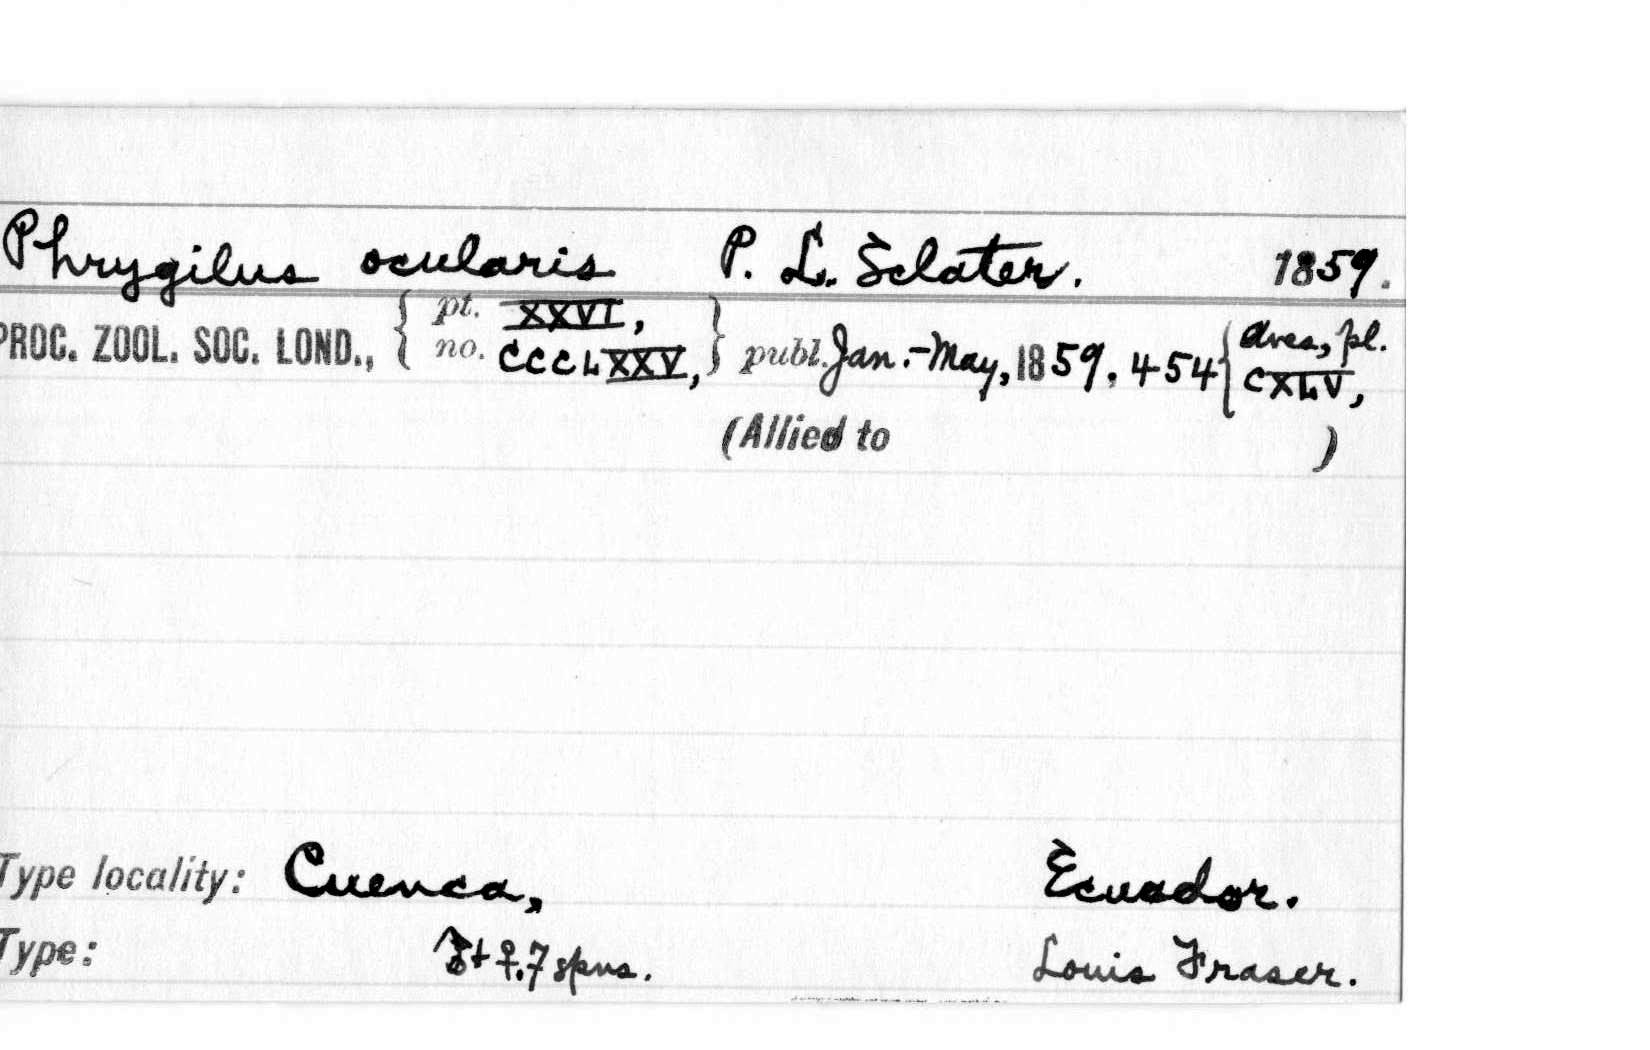 Phrygilus ocularis P. L. Sclater. 1859.
PROC. ZOOL. SOC. LOND., { pt. XXVI, no. CCCLXXV, } publ. Jan.-May, 1859, 454 { Aves, pl. CXLV,
(Allied to )
Type locality: Cuenca, Ecuador.
Type: ♂ + ♀. 7 spns. Louis Fraser.